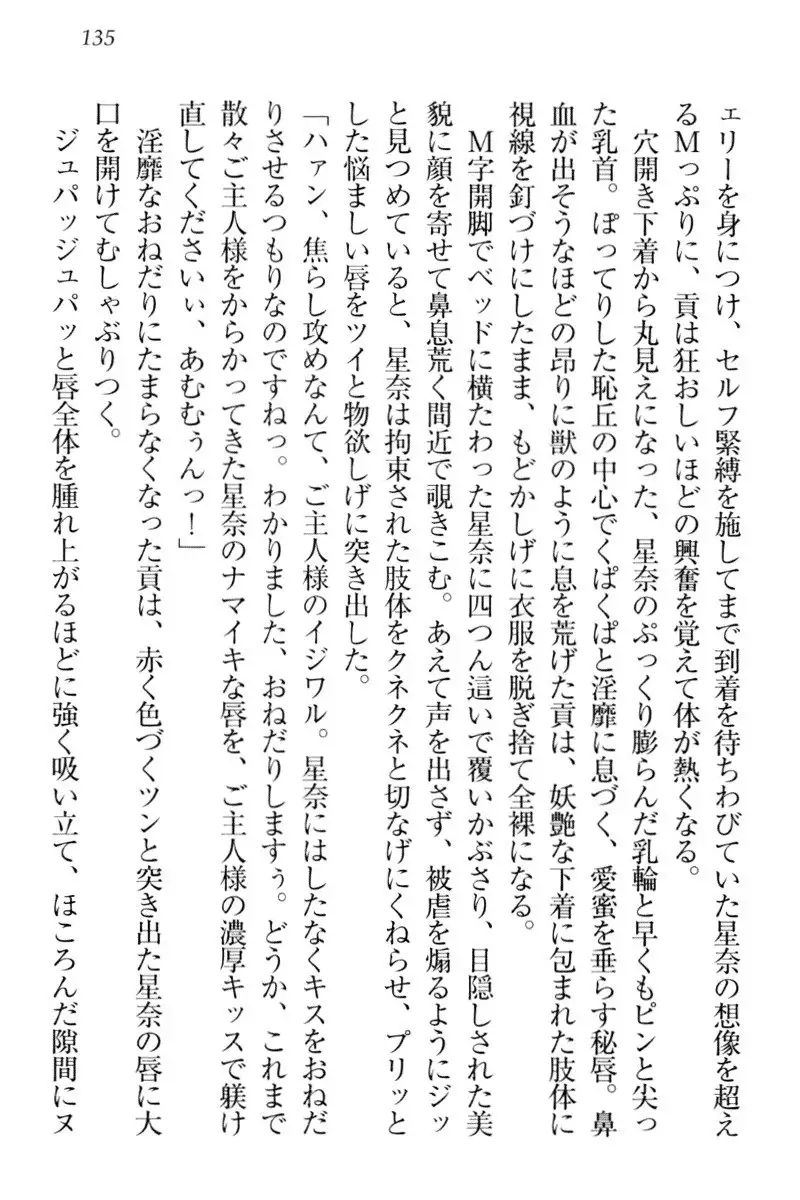 135
ェリーを身につけ、セルフ緊縛を施してまで到着を待ちわびていた星奈の想像を超え
るMっぷりに、貢は狂おしいほどの興奮を覚えて体が熱くなる。
穴開き下着から丸見えになった、星奈のぷっくり膨らんだ乳輪と早くもピンと尖っ
た乳首。ぽってりした恥丘の中心でくぱくぱと淫靡に息づく、愛蜜を垂らす秘唇。鼻
血が出そうなほどの昂りに獣のように息を荒げた貢は、妖艶な下着に包まれた肢体に
視線を釘づけにしたまま、もどかしげに衣服を脱ぎ捨て全裸になる。
M字開脚でベッドに横たわった星奈に四つん這いで覆いかぶさり、目隠しされた美
貌に顔を寄せて鼻息荒く間近で覗きこむ。あえて声を出さず、被虐を煽るようにジッ
と見つめていると、星奈は拘束された肢体をクネクネと切なげにくねらせ、プリッと
した悩ましい唇をツイと物欲しげに突き出した。
「ハァン、焦らし攻めなんて、ご主人様のイジワル。星奈にはしたなくキスをおねだ
りさせるつもりなのですねっ。わかりました、おねだりしますぅ。どうか、これまで
散々ご主人様をからかってきた星奈のナマイキな唇を、ご主人様の濃厚キッスで躾け
直してくださいぃ、あむむぅんっ！」
淫靡なおねだりにたまらなくなった貢は、赤く色づくツンと突き出た星奈の唇に大
口を開けてむしゃぶりつく。
ジュパッジュパッと唇全体を腫れ上がるほどに強く吸い立て、ほころんだ隙間にヌ